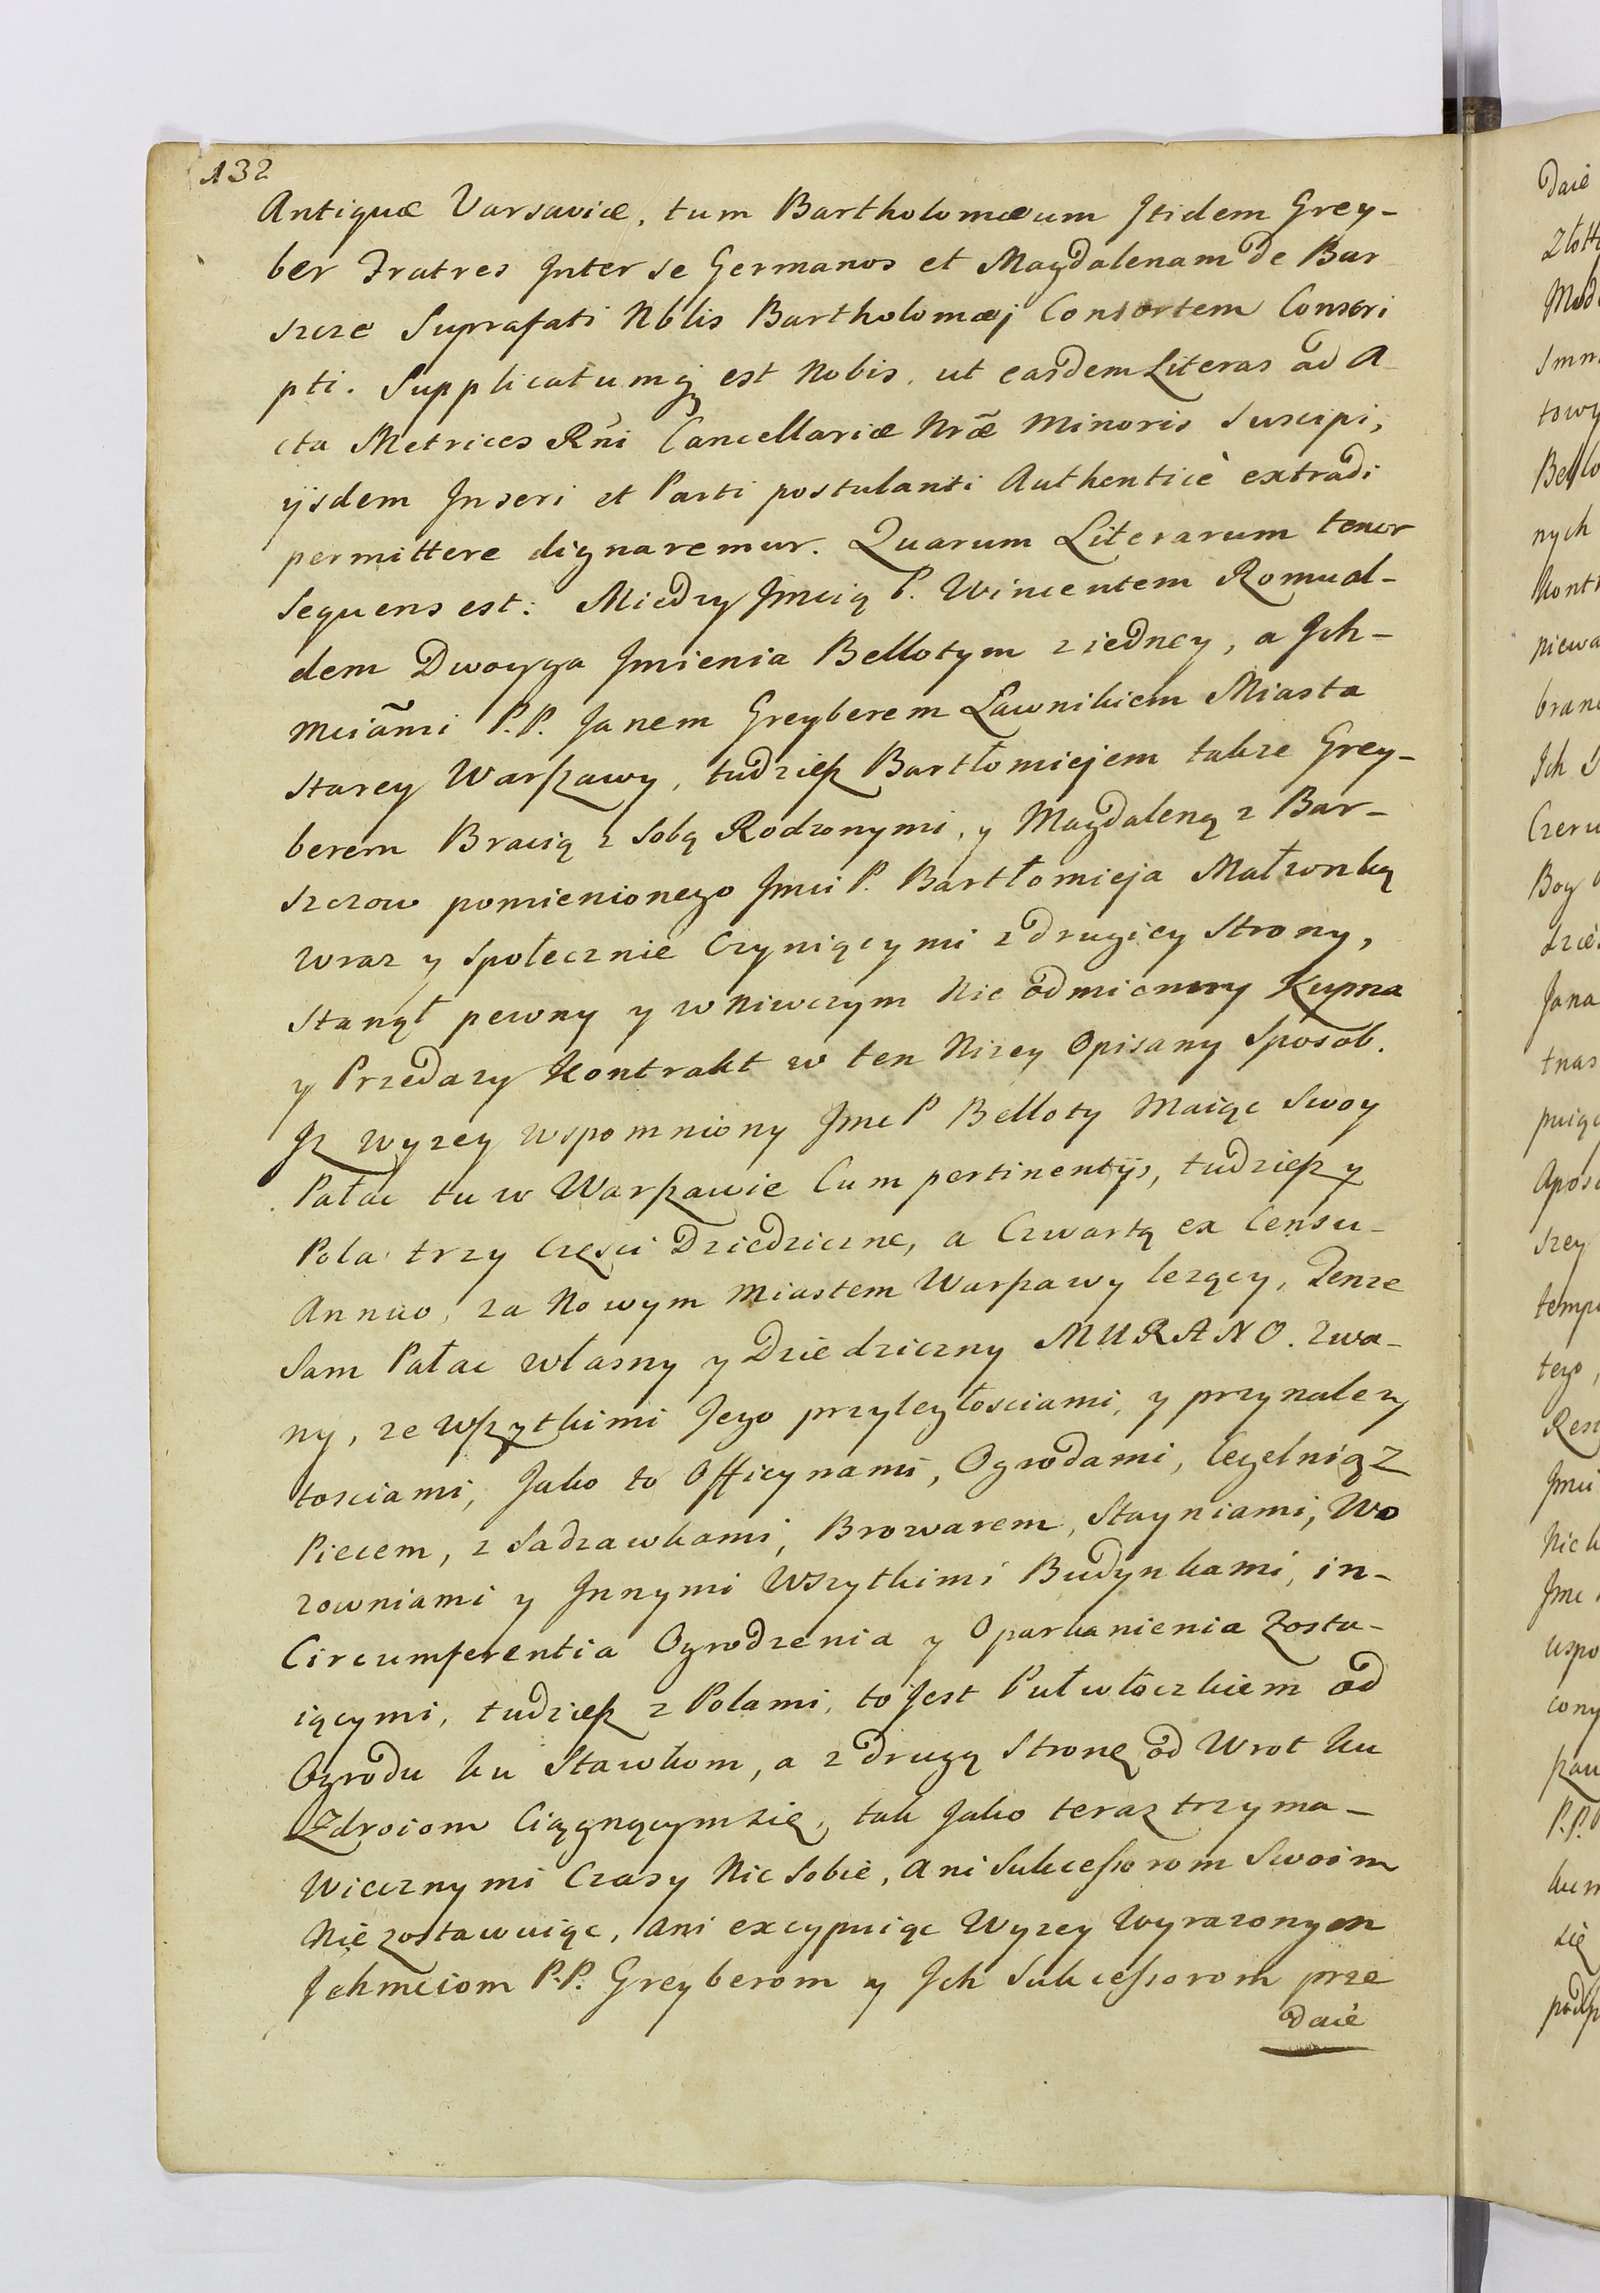 132
Antiquæ Varsaviæ, tum Bartholomæum Itidem Grey-
ber Fratres Inter se Germanos et Magdalenam de Bar
szcze Suprafati Nblis Bartholomæj Consortem Conscri
pti. Supplicatumq; est Nobis, ut easdem Literas ad A
cta Metrices Rñi Cancellariæ Nræ̃ Minoris Suscipi,
ijsdem Inseri et Parti postulanti Authenticè extradi
permittere dignaremur. Quarum Literarum tenor
Sequens est: Miedzy Jmcią P. Wincentem Romual-
dem Dwoyga Jmienia Bellotym z iedney, a Jch-
mciãmi P.P. Janem Greyberem Ławnikiem Miasta
starey Warszawy, tudziesz Bartłomiejem takze Grey-
berem Bracią z Sobą Rodzonymi, y Magdaleną z Bar-
szczow pomienionego Jmci P. Bartłomieja Małzonką
wraz y społecznie Czyniącymi z drugiey Strony,
Stanął pewny y w niwczym Nie odmienny Kupna
y Przedazy Kontrakt w ten Nizey Opisany Sposob.
Jz wyzey wspomniony Jmc P Belloty Maiąc Swoy
Pałac tu w Warszawie Cum pertinentijs, tudziesz y
Pola trzy Częsci Dziedziczne, a Czwartą ex Censu-
Annuo, za Nowym Miastem Warszawy lezący, Tenze
Sam Pałac własny y Dziedziczny MURANO. Zwa-
ny, ze wszytkimi Jego przyległosciami, y przynalezy
tosciami, Jako to Officynami, Ogrodami, Cegelnią z
Piecem, z Sadzawkami, Browarem, Stayniami, Wo
zowniami y Innymi Wszytkimi Budynkami, in-
Circumferentia Ogrodzenia y Oparkanienia Zosta-
iącymi, tudziesz z Polami, to Jest Pułwłoczkiem od
Ogrodu ku Stawkom, a z drugą Stronę od Wrot ku
Zdroiom Ciągnącym się, tak Jako teraz trzyma-
Wiecznymi Czasy Nic Sobie, ani Sukcessorom Swoim
Nie zostawuiąc, ani excypuiąc Wyzey Wyrazonym
Jchmciom P.P. Greyberom y Jch Sukcessorom prze
daie
Daie
nych
Jana
szey
tego,
Jmci
cony
P.P.
się